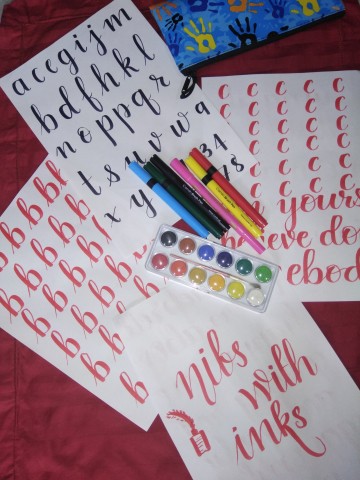 a c e g i j m
b d f h k l
n o p p q r
t s u v w
x y
8
c c c c
c c c c
c c c c
c c c c
c c c c
c c c c
yours
believe do
ebod
b b b
b b b b
b b b b
b b b b
b b b b
b b b
nibs
with
inks